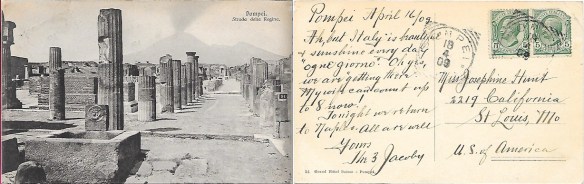 Pompei.
Strada della Regina.
Pompei April 16/09.
Ah but Italy is beautiful
sunshine every day
"ogne giorno". Oh yes,
we are getting there.
My wife can count up
to 8 now!
Tonight we return
to Naples. All are well
Yours
The 3 Jacobys
POMPEI
18
4
09
5
5
Miss Josephine Hunt
2219 California
St Louis, Mo
U.S. of America
Grand Hôtel Suisse - Pompei